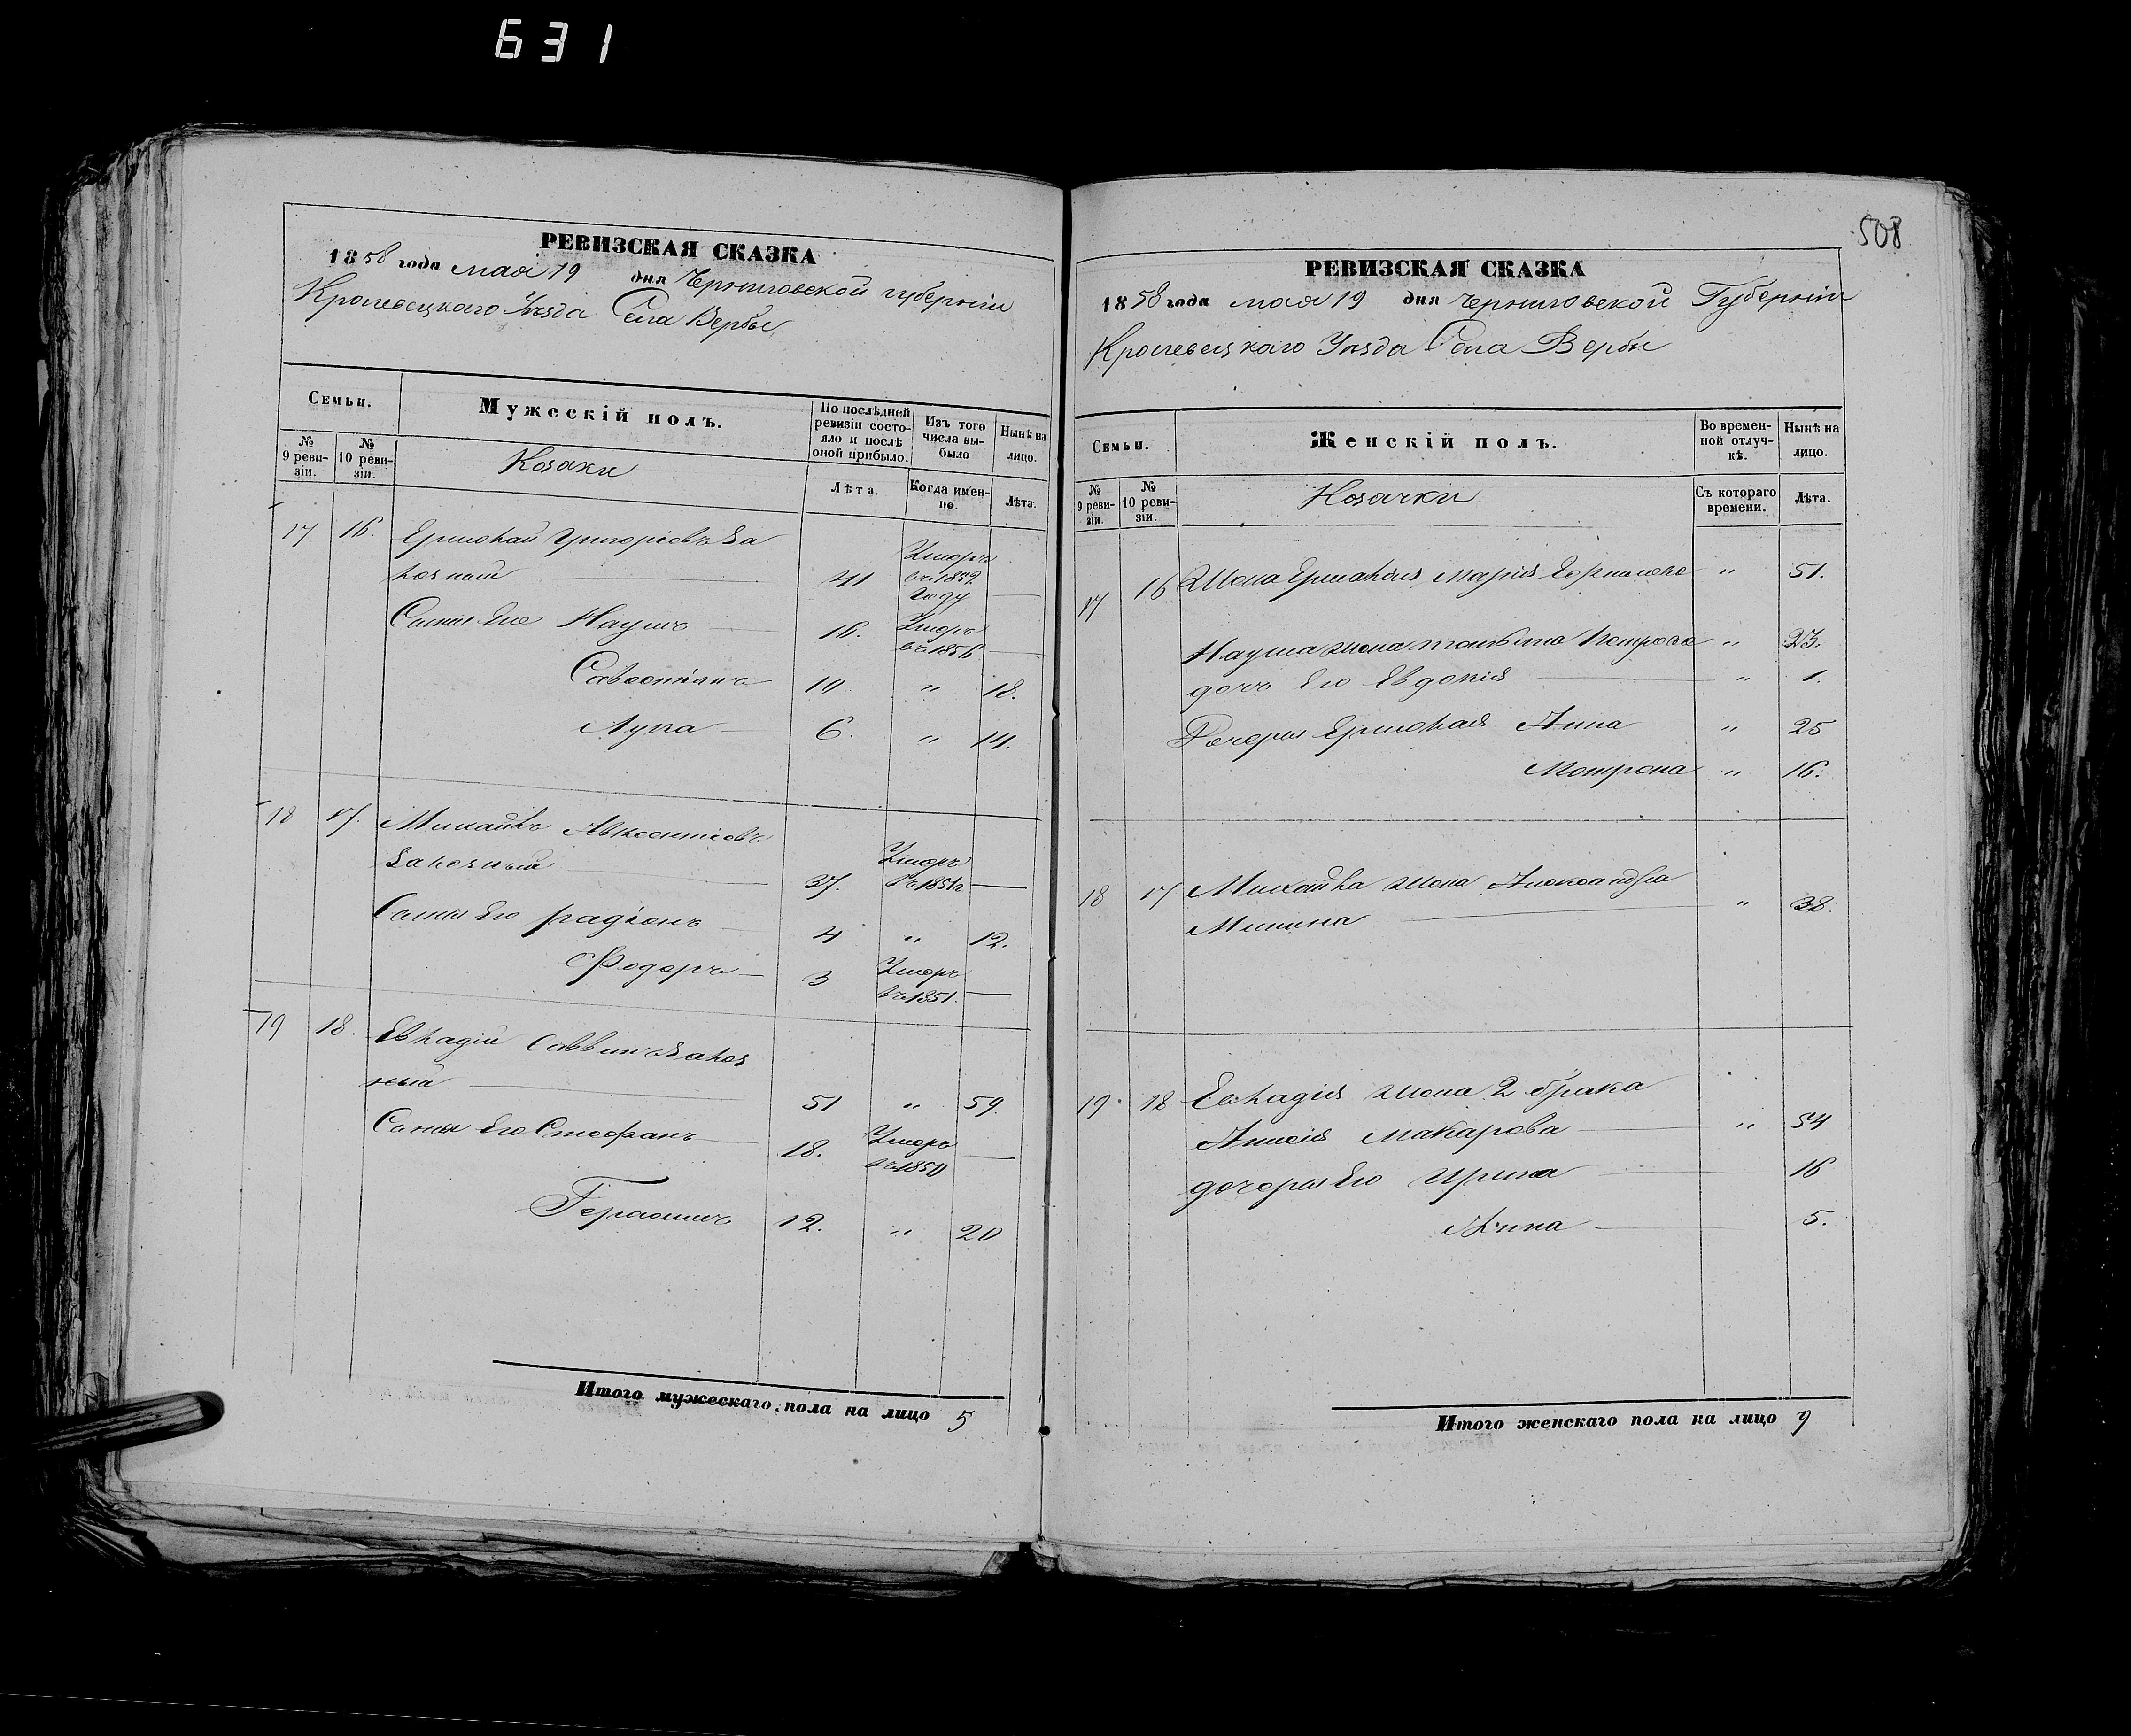 631
508
РЕВИЗСКАЯ СКАЗКА
1858 года мая 19 дня Черниговской губерніи
Кролевецкаго Уѣзда Села Вербы
Семьи.
Мужескій полъ.
По послѣдней ревизіи состояло и послѣ оной прибыло.
Изъ того числа выбыло
Нынѣ на лицо.
№ 9 ревизіи.
№ 10 ревизіи.
Козаки
Лѣта.
Когда именно.
Лѣта.
17 16. Ермолай Григоріевъ За
41 Умеръ въ 1852 году —
Сыны Его Наумъ — 16. Умеръ въ 1856 —
Савостіянъ 10 " 18.
Лупа — 6. " 14.
18 17. Михайло Авксентіевъ
37. Умеръ —
Сыны Его Радіонъ 4 " 12.
Федоръ — 3 Умеръ въ 1851. —
19 18. Савинъ
ный 51 " 59.
Сыны Его Стефанъ 18. Умеръ въ 1850 —
Герасимъ 12. " 20
Итого мужескаго пола на лицо 5
РЕВИЗСКАЯ СКАЗКА
1858 года мая 19 дня Черниговской Губерніи
Кролевецкаго Уѣзда Села Вербы
Семьи.
Женскій полъ.
Во временной отлучкѣ.
Нынѣ на лицо.
№ 9 ревизіи.
№ 10 ревизіи.
Козачки
Съ котораго времени.
Лѣта.
17 16 Жена Ермолая Марія " 51.
Наума жена Петрова " 23.
дочь Его Евдокія " 1.
Дочери Ермолая Анна " 25
Мотрона " 16.
18 17 Михайла жена Александра
Минина " 38.
19. 18 жена 2 брака
Макарова — " 54
дочери Его Ирина 16
Анна — 5.
Итого женскаго пола на лицо 9